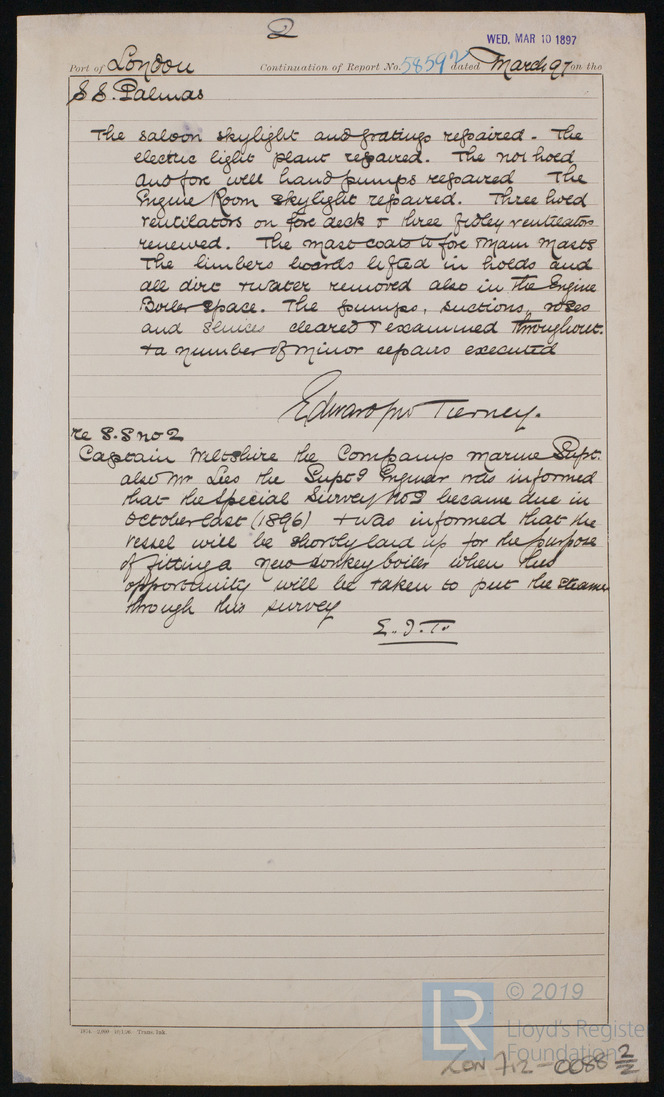 2
WED. MAR 10 1897
Port of London Continuation of Report No. 58592 dated March 97 on the
S.S. Palmas
The saloon skylight and gratings repaired. The
electric light plant repaired. The no1 hold
and fore well hand pumps repaired The
Engine Room skylight repaired. Three hold
ventilators on fore deck & three fidley ventilators
renewed. The mast coats to fore & main masts
The limbers boards lifted in holds and
all dirt & water removed also in the Engine
Boiler space. The pumps, suctions, roses
and sluices cleared & examined throughout.
& a number of minor repairs executed
Edward Jno Tierney.
re S.S no 2
Captain Wiltshire the Companys marine Supt.
also Mr Lees the Supt Engineer was informed
that the Special Survey No 2 became due in
October last (1896) & was informed that the
vessel will be shortly laid up for the purpose
of fitting a new donkey boiler when this
opportunity will be taken to put the steamer
through this survey
E. J. T.
© 2019
LR
Lloyd's Register
Foundation
LON 712-0088 2/2